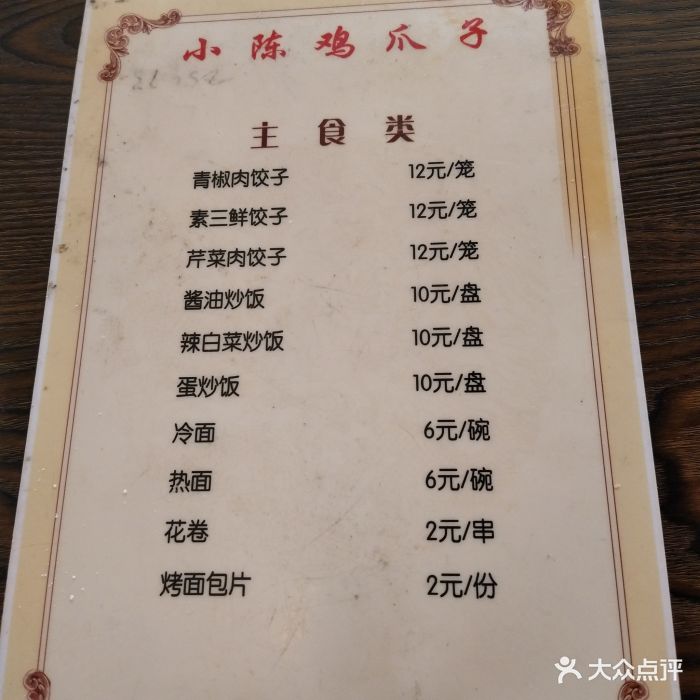 小陈鸡爪子
主食类
青椒肉饺子 12元/笼
素三鲜饺子 12元/笼
芹菜肉饺子 12元/笼
酱油炒饭 10元/盘
辣白菜炒饭 10元/盘
蛋炒饭 10元/盘
冷面 6元/碗
热面 6元/碗
花卷 2元/串
烤面包片 2元/份
大众点评